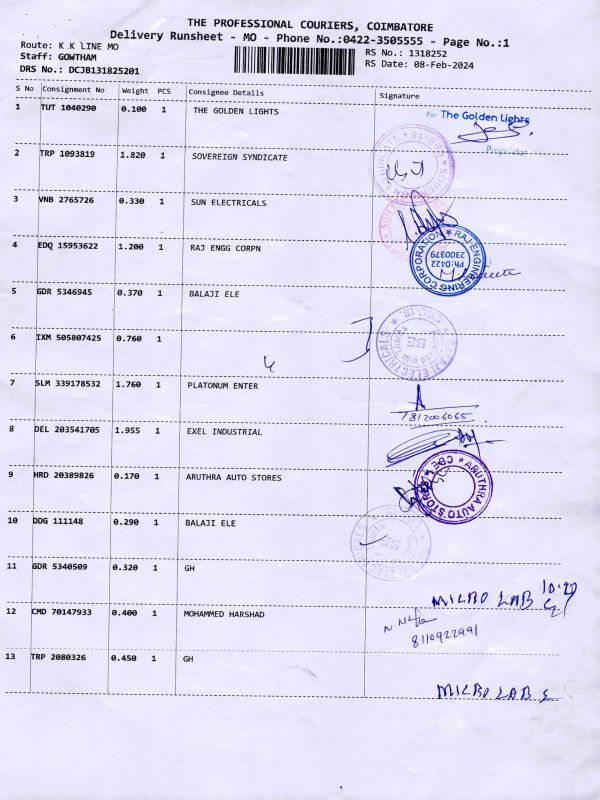 THE PROFESSIONAL COURIERS, COIMBATORE
Delivery Runsheet - MO - Phone No.:0422-3505555 - Page No.:1
Route: K K LINE MO
RS No.: 1318252
Staff: GOWTHAM
RS Date: 08-Feb-2024
DRS No.: DCJB131825201
S No Consignment No Weight PCS Consignee Details Signature
1 TUT 1040290 0.100 1 THE GOLDEN LIGHTS
For The Golden Lights
Proprietor
2 TRP 1093819 1.820 1 SOVEREIGN SYNDICATE
3 VNB 2765726 0.330 1 SUN ELECTRICALS
4 EDQ 15953622 1.200 1 RAJ ENGG CORPN
RAJ-ENGINEERING CORPORATION
Ph:0422
2300379
5 GDR 5346945 0.370 1 BALAJI ELE
6 IXM 505807425 0.760 1
7 SLM 339178532 1.760 1 PLATONUM ENTER
7812006065
8 DEL 203541705 1.955 1 EXEL INDUSTRIAL
9 HRD 20389826 0.170 1 ARUTHRA AUTO STORES
ARUTHRA AUTO STORES CBE
10 DDG 111148 0.290 1 BALAJI ELE
11 GDR 5340509 0.320 1 GH
MICRO LAB
12 CMD 70147933 0.400 1 MOHAMMED HARSHAD
8110922991
13 TRP 2080326 0.450 1 GH
MICRO LAB